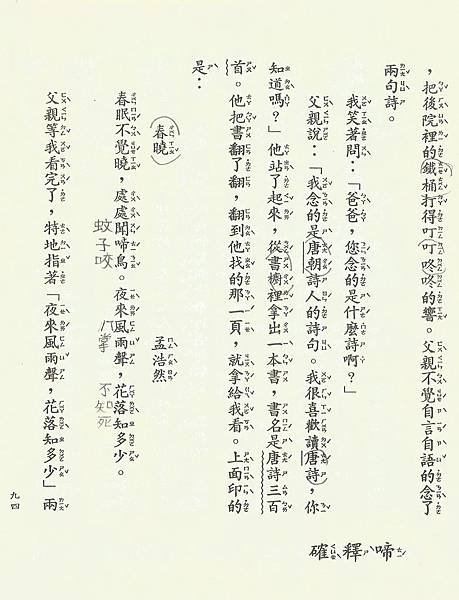 ，把後院裡的鐵桶打得叮叮咚咚的響。父親不覺自言自語的念了
兩句詩。
我笑著問：「爸爸，您念的是什麼詩啊？」
父親說：「我念的是唐朝詩人的詩句。我很喜歡讀唐詩，你
知道嗎？」他站了起來，從書櫥裡拿出一本書，書名是唐詩三百
首。他把書翻了翻，翻到他找的那一頁，就拿給我看。上面印的
是：
春曉
孟浩然
春眠不覺曉，處處聞啼鳥。夜來風雨聲，花落知多少。
蚊子咬
八掌
不知死
父親等我看完了，特地指著「夜來風雨聲，花落知多少」兩
啼釋確
九四